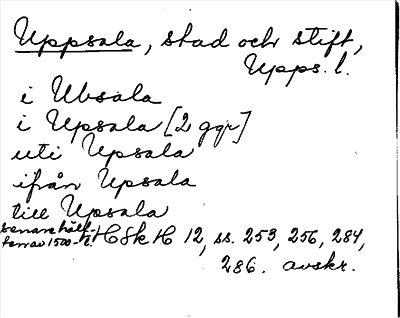 Uppsala, stad och stift,
Upps. l.
i Ubsala
i Upsala [2 ggr]
uti Upsala
ifrån Upsala
till Upsala
senare hälf-
ten av 1500-t. HSkH 12, ss. 253, 256, 284,
286. avskr.